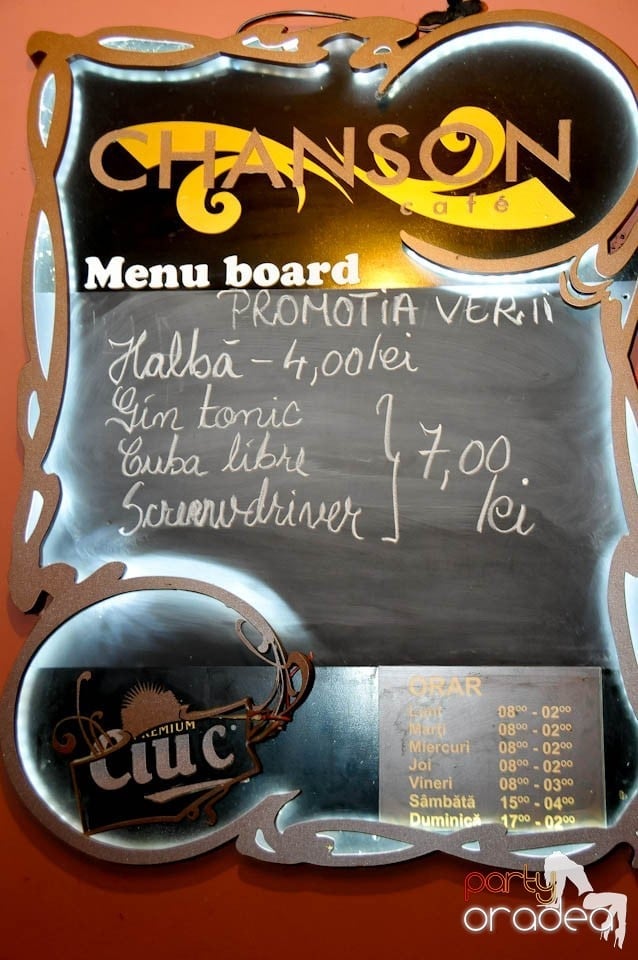 CHANSON
café
Menu board
PROMOTIA VERII
Halbă - 4,00 lei
Gin tonic
Cuba libre 7,00
Screwdriver lei
ORAR
Luni 08⁰⁰ - 02⁰⁰
Marți 08⁰⁰ - 02⁰⁰
Miercuri 08⁰⁰ - 02⁰⁰
Joi 08⁰⁰ - 02⁰⁰
Vineri 08⁰⁰ - 03⁰⁰
Sâmbătă 15⁰⁰ - 04⁰⁰
Duminică 17⁰⁰ - 02⁰⁰
PREMIUM
Ciuc
party
oradea